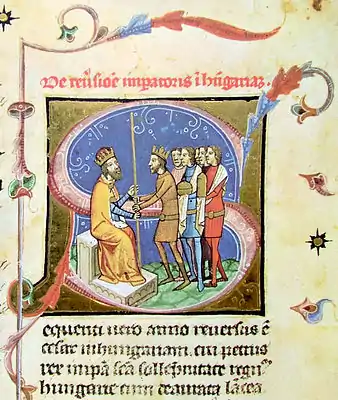 De reūsiōe impatoris ī hūgariaz.
Sequenti uero anno reuersus ē
cesar in hungariam. cui petrus
rex in ipa sc̄a sollēpnitate regnū
hungarie cum deaurata lācea